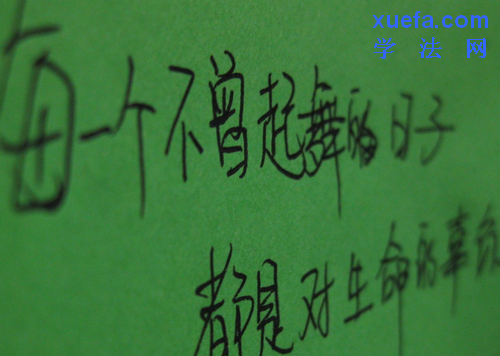 xuefa.com
学法网
每一个不曾起舞的日子
都是对生命的辜负